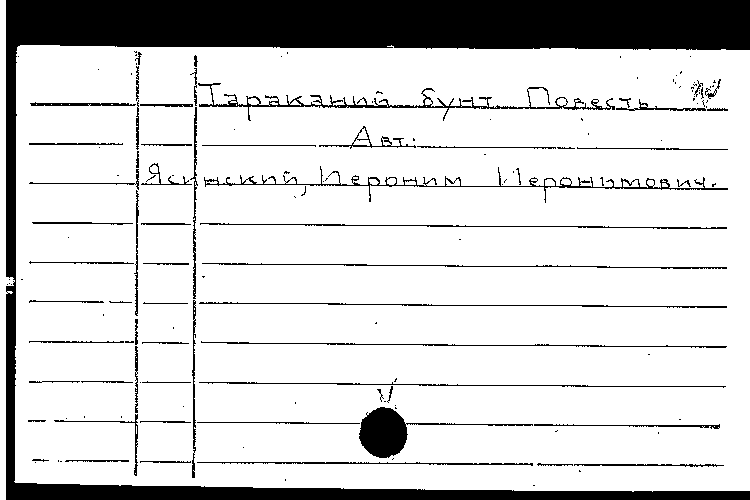 Тараканий бунт. Повесть.
Авт.:
Ясинский, Иероним Иеронимович.